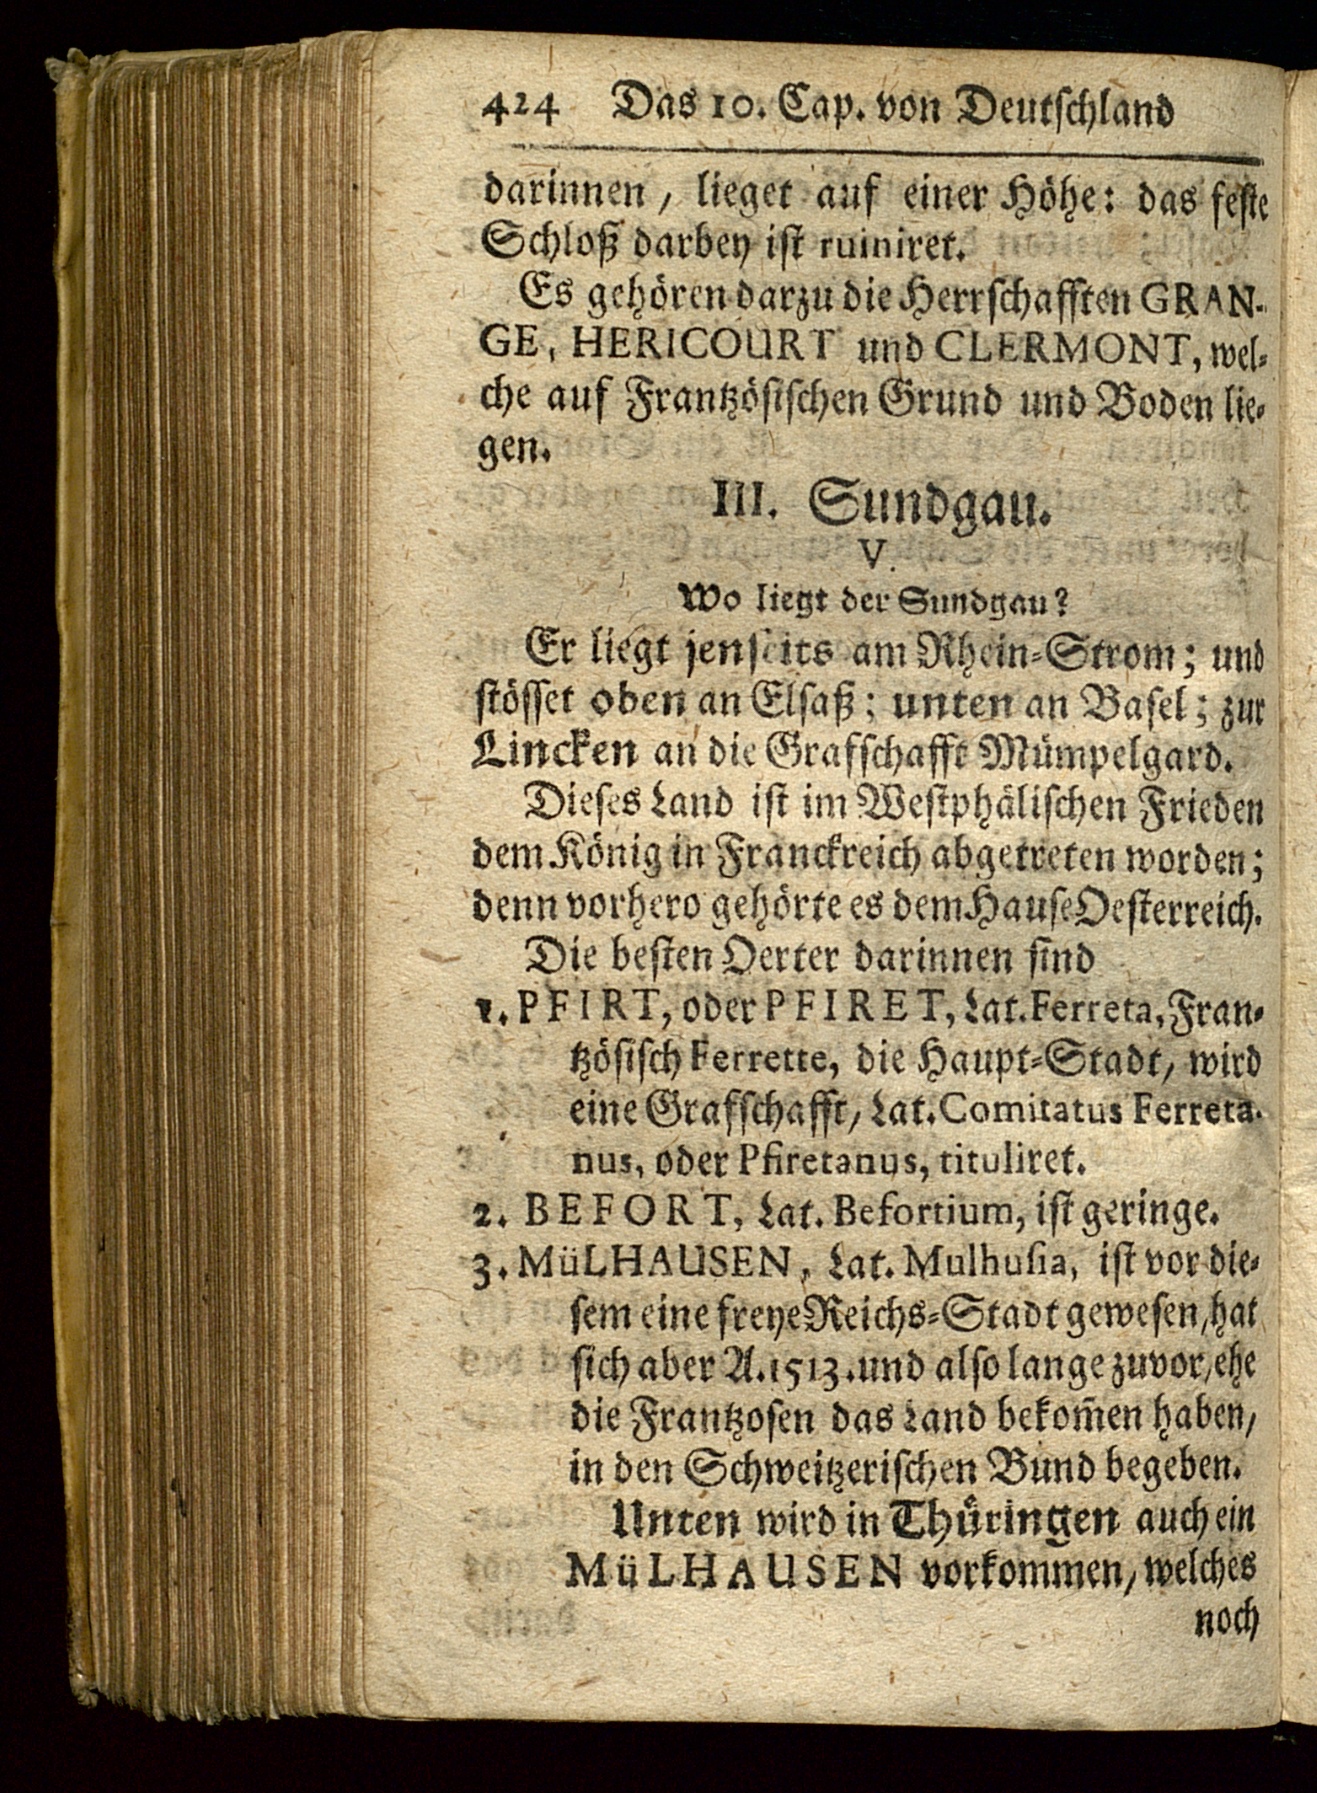 424 Das 10. Cap. von Deutschland
darinnen / lieget auf einer Höhe: das feste
Schloß darbey ist ruiniret.
Es gehören darzu die Herrschafften GRAN-
GE, HERICOURT und CLERMONT, wel-
che auf Frantzösischen Grund und Boden lie-
gen.
III. Sundgau.
V.
Wo liegt der Sundgau?
Er liegt jenseits am Rhein-Strom; und
stösset oben an Elsaß; unten an Basel; zur
Lincken an die Grafschafft Mümpelgard.
Dieses Land ist im Westphälischen Frieden
dem König in Franckreich abgetreten worden;
denn vorhero gehörte es dem Hause Oesterreich.
Die besten Oerter darinnen sind
1. PFIRT, oder PFIRET, Lat. Ferreta, Fran-
tzösisch Ferrette, die Haupt-Stadt / wird
eine Grafschafft / Lat. Comitatus Ferreta-
nus, oder Pfiretanus, tituliret.
2. BEFORT, Lat. Befortium, ist geringe.
3. MüLHAUSEN, Lat. Mulhusia, ist vor die-
sem eine freye Reichs-Stadt gewesen / hat
sich aber A. 1513. und also lange zuvor / ehe
die Frantzosen das Land bekom̃en haben /
in den Schweitzerischen Bund begeben.
Unten wird in Thüringen auch ein
MüLHAUSEN vorkommen / welches
noch